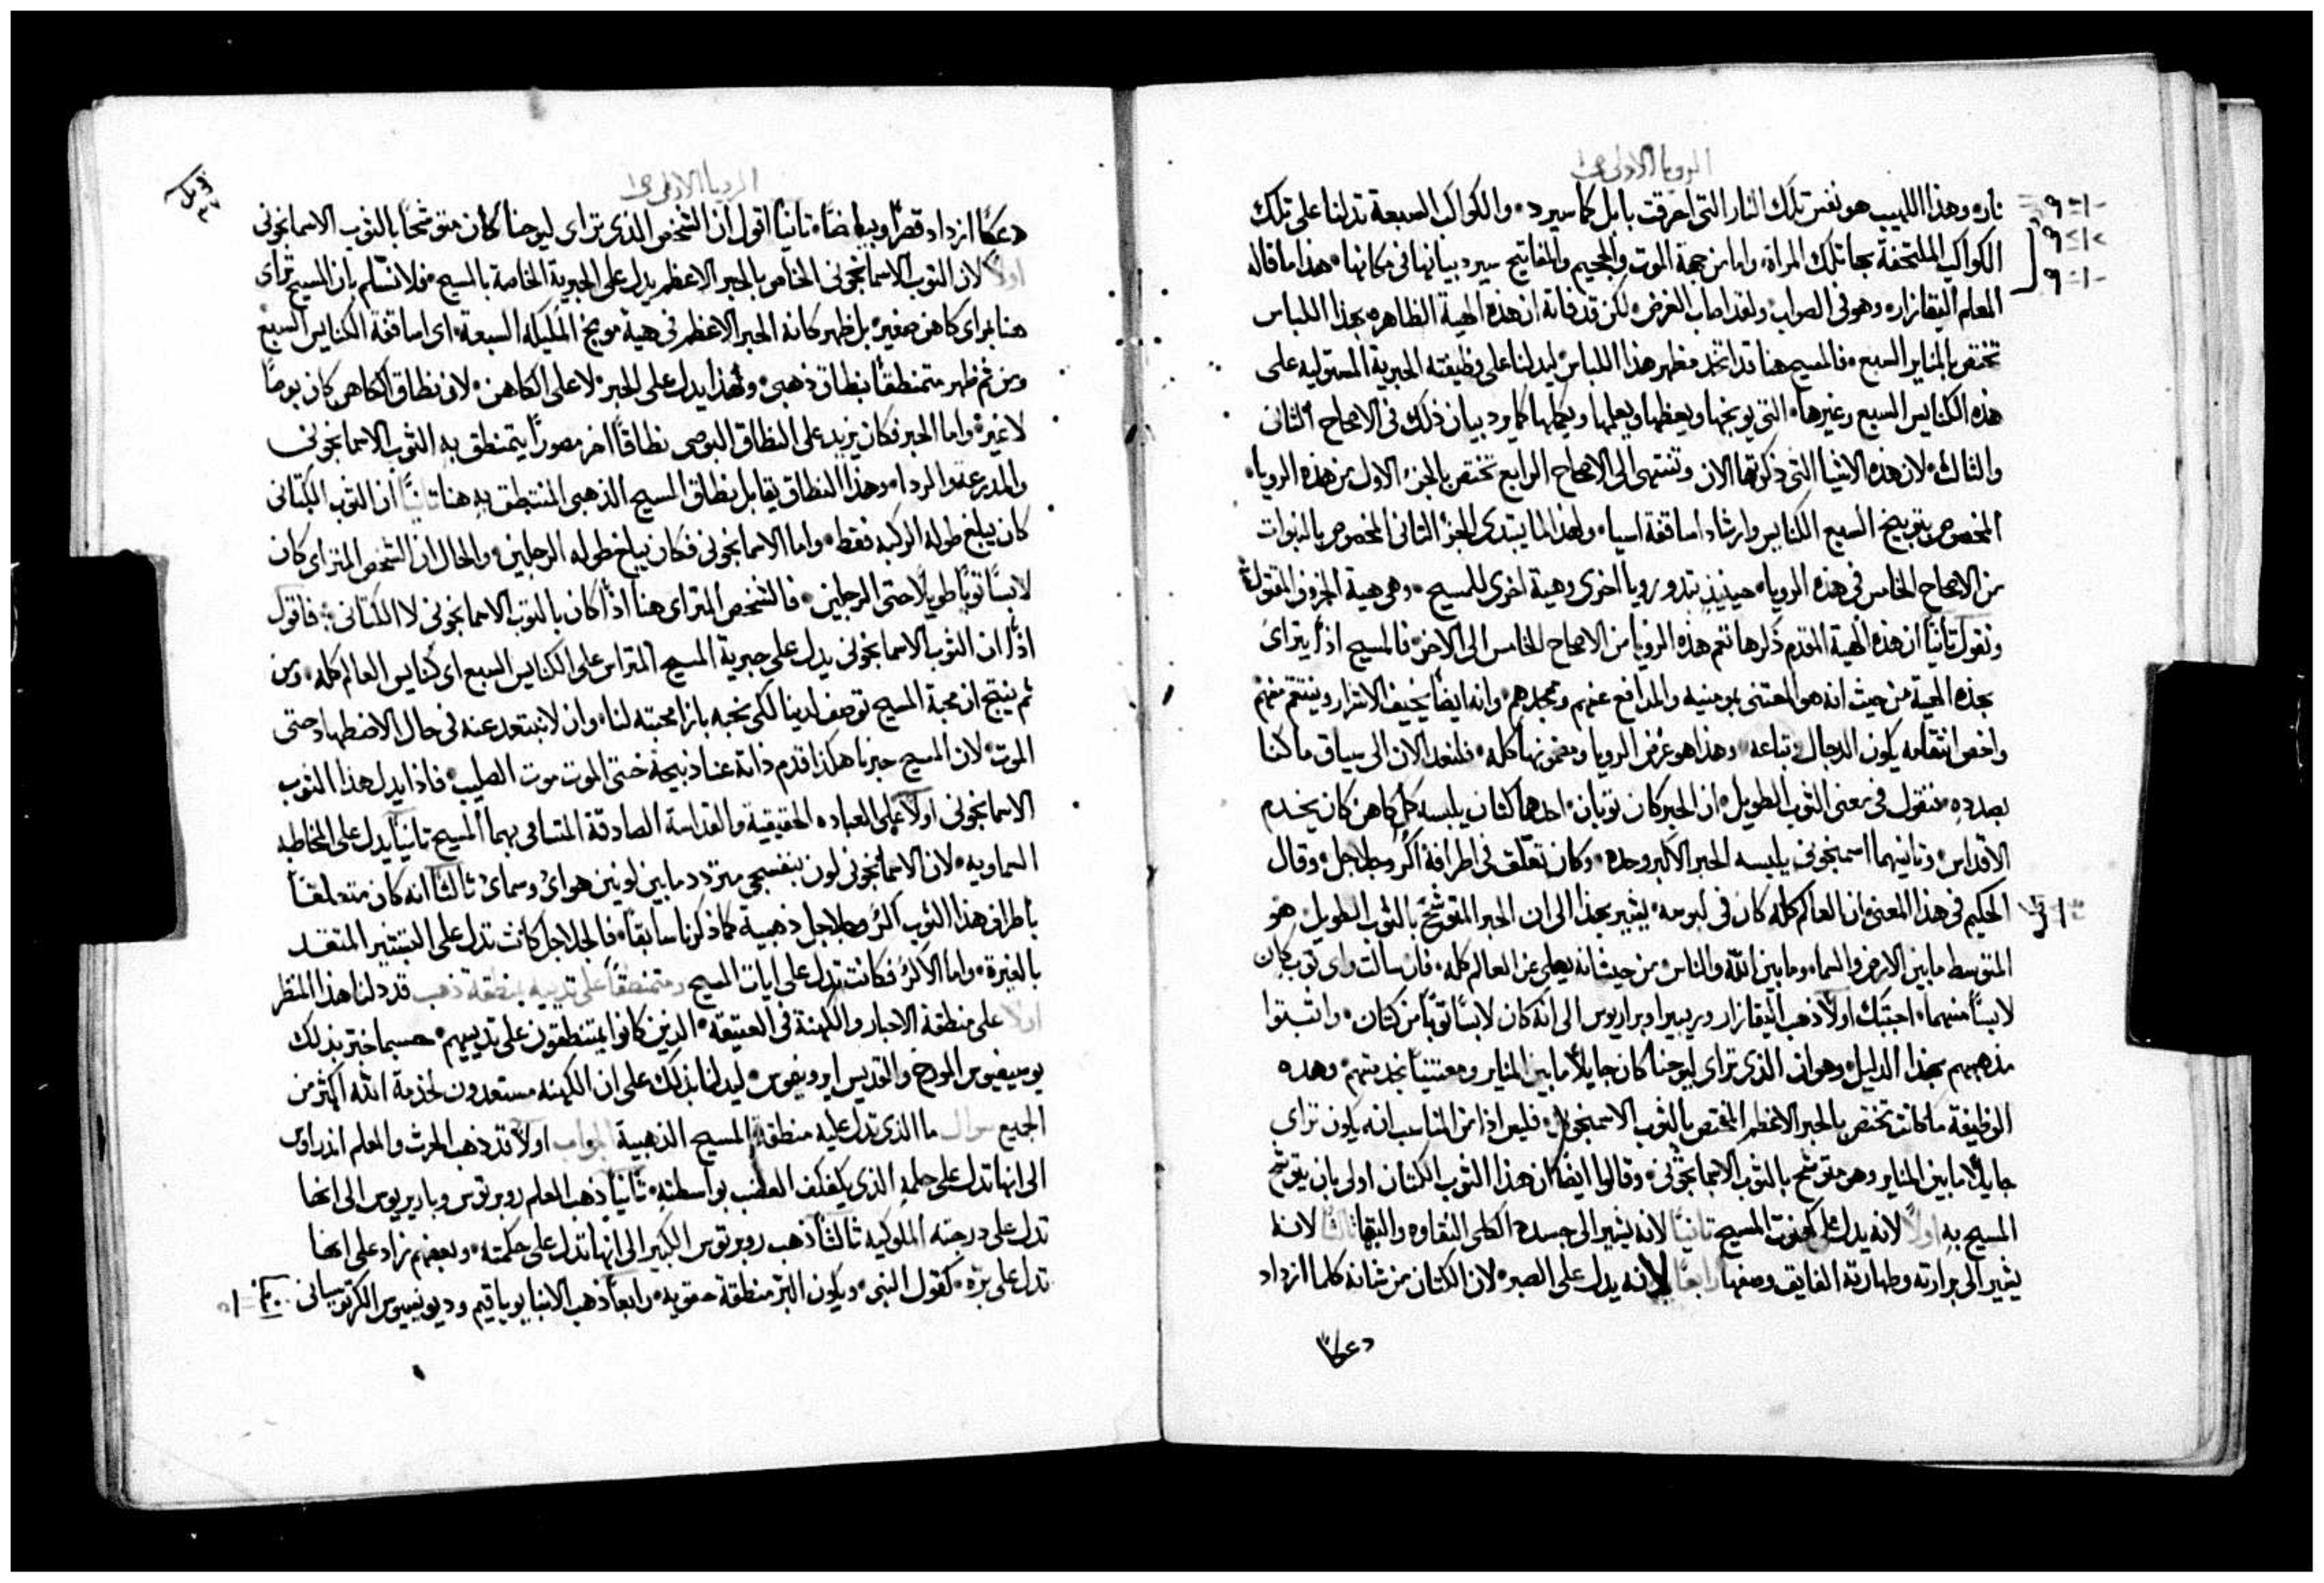 الرويا الاولى ص١
نار، وهذا اللهيب هو نفس تلك النار التي احرقت بابل كما سيرد، والكواكب السبعة تدلنا على تلك
الكواكب الملتحفة بها تلك المراة، واما من جهة الموت والجحيم والمفاتيح سيرد بيانها في مكانها، هذا ما قاله
المعلم اليقازار، وهو في الصواب ولقد اصاب الغرض، لكن قد فاته ان هذه الهية الظاهره بهذا اللباس
تختص بالمناير السبع، فالمسيح هنا قد اتخذ مظهر هذا اللباس ليدلنا على وظيفته الحبرية المستوليه على
هذه الكنايس السبع وغيرها، التي يوبخها ويعظها ويعلمها ويكملها كما يرد بيان ذلك في الاصحاح الثاني
والثالث، لان هذه الاشيا التي ذكرتها الان وتنتهي الى الاصحاح الرابع تختص بالجز الاول من هذه الرويا،
المخصوص بتوبيخ السبع الكنايس وارشاد اساقفة اسيا، ولهذا لما يبتدي الجز الثاني المخصوص بالنبوات
من الاصحاح الخامس في هذه الرويا، حينيذ تبدو رويا اخرى وهية اخرى للمسيح، وهي هية الخروف المقتول
ونقول ثانياً ان هذه الهية المقدم ذكرها تعم هذه الرويا من الاصحاح الخامس الى الاخر، فالمسيح اذاً يتراى
بهذه الهية من حيث انه هو المعتني بمومنيه والمدافع عنهم ومجدهم، وانه ايضاً يخيف الاشرار وينتقم منهم
واخص انتقامه يكون الدجال وتباعه، وهذا هو غرض الرويا ومضمونها كله، فلنعد الان الى سياق ما كنا
بصدده، فنقول في معنى الثوب الطويل، ان الحبر كان ثوبان، احدهما كتان يلبسه كل كاهن كان يخدم
الاقداس، وثانيهما اسمنجوني يلبسه الحبر الاكبر وحده، وكان تعلق في اطرافه اكر وجلاجل، وقال
الحكيم في هذا المعنى ان العالم كله كان في لبوسه، يشير بهذا الى ان الحبر المتوشح بالثوب الطويل هو
المتوسط ما بين الارض والسما، وما بين الله والناس، من حيث انه يصلي عن العالم كله، فان سالت واي ثوب كان
لابساً منهما، اجبتك اولاً ذهب اليقازار وريبيرا وبراريوس الى انه كان لابساً ثوباً من كتان، واثبتوا
مذهبهم بهذا الدليل، وهو ان الذي تراى ليوحنا كان جايلاً ما بين المناير ومعتنياً بخدمتهم، وهذه
الوظيفة ما كانت تختص بالحبر الاعظم المختص بالثوب الاسمنجوني، فليس اذاً من المناسب انه يكون تراى
جايلاً ما بين المناير وهو متوشح بالثوب الاسمانجوني، وقالوا ايضاً ان هذا الثوب الكتان اولى بان يتوشح
المسيح به اولاً لانه يدل على كهنوت المسيح ثانياً لانه يشير الى جسده الكلي النقاوه والبها ثالثاً لانه
يشير الى برارته وطهارته الفايق وصفها رابعاً لانه يدل على الصبر، لان الكتان من شانه كلما ازداد
دعكاً
الرويا الاولى ص١
دعكاً ازداد قصراً وبياضاً، ثانياً اقول ان الشخص الذي تراى ليوحنا كان متوشحاً بالثوب الاسمانجوني
اولاً لان الثوب الاسمانجوني الخاص بالحبر الاعظم يدل على الحبرية الخاصة بالمسيح، فلا نسلم بان المسيح تراى
هنا براي كاهن صغير، بل ظهر كانه الحبر الاعظم في هية موبخ المليكه السبعة، اي اساقفة الكنايس السبع
ومن ثم ظهر متمنطقاً بنطاق ذهبي، وهذا يدل على الحبر، لا على الكاهن، لان نطاق الكاهن كان بوصاً
لا غير، واما الحبر فكان يزيد على النطاق البوصي نطاقاً اخر مصوراً يتمنطق به الثوب الاسمانجوني
والمدرعة والردا، وهذا النطاق يقابل نطاق المسيح الذهبي المنتطق به هنا ثانياً ان الثوب الكتاني
كان يبلغ طوله الركبه فقط، واما الاسمانجوني فكان يبلغ طوله الرجلين، والحال ان الشخص المتراى كان
لابساً ثوباً طويلاً حتى الرجلين، فالشخص المتراى هنا اذاً كان بالثوب الاسمانجوني لا الكتاني، فاقول
اذاً ان الثوب الاسمانجوني يدل على حبرية المسيح المتراس على الكنايس السبع اي كنايس العالم كله، ومن
ثم ينتج ان محبة المسيح توضف لدينا لكي نحبه بازا محبته لنا، وان لا نبتعد عنه في حال الاضطهاد حتى
الموت، لان المسيح حبرنا هكذا قدم ذاته عنا ذبيحة حتى الموت موت الصليب، فاذا يدل هذا الثوب
الاسمانجوني اولاً على العباده الحقيقية والقداسة الصادقة المتسامي بهما المسيح ثانياً يدل على المخاطبه
السماويه، لان الاسمانجوني لون بنفسجي متردد ما بين لونين هواي وسماي ثالثاً انه كان متعلقاً
باطراف هذا الثوب اكر وجلاجل ذهبية كما ذكرنا سابقاً، فالجلاجل كانت تدل على التبشير المتقد
بالغيرة، واما الاكر فكانت تدل على ايات المسيح ومتمنطقاً على ثدييه بمنطقة ذهب قد دلنا هذا المنظر
اولاً على منطقة الاحبار والكهنة في العتيقه، الذين كانوا يتمنطقون على ثدييهم، حسبما اخبر بذلك
يوسيفوس المورخ والقديس ايرونيموس، ليدلنا بذلك على ان الكهنه مستعدون لخدمة الله اكثر من
الجميع سوال ما الذي تدل عليه منطقة المسيح الذهبية الجواب اولاً قد ذهب الحرث والمعلم اندراوس
الى انها تدل على حلمه الذي يكفكف الغضب بواسطته، ثانياً ذهب المعلم روبرتوس وباريريوس الى انها
تدل على درجته الملوكيه ثالثاً ذهب روبرتوس الكبير الى انها تدل على حكمته، وبعضهم زاد على انها
تدل على بره، كقول النبي، ويكون البر منطقة حقويه، رابعاً ذهب الانبا يوياقيم وديونيسيوس الكرتوسياني